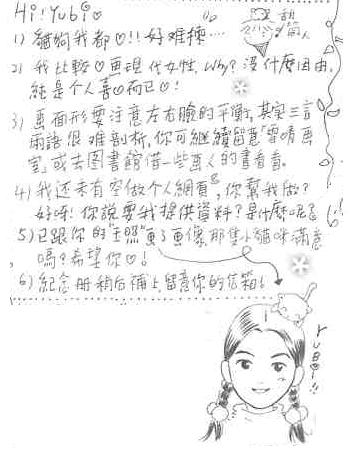 Hi! Yubi
1) 貓狗我都♡!! 好难揀…
甜筒人
2) 我比較♡画現代女性, Why? 沒什麼因由,
純是个人喜心而已♡!
3) 画面形要注意左右臉的平衡, 其实三言
兩語很难剖析, 你可继續留意"雪晴画
室", 或去图書館借一些画人的書看看。
4) 我还未有空做个人網頁, 你幫我做?
好呀! 你說要我提供資料? 是什麼呢?
5) 已跟你的"玉照"画了画像, 那隻小貓咪滿意
嗎? 希望你♡!
6) 紀念册稍后補上, 留意你的信箱!
rubi!!